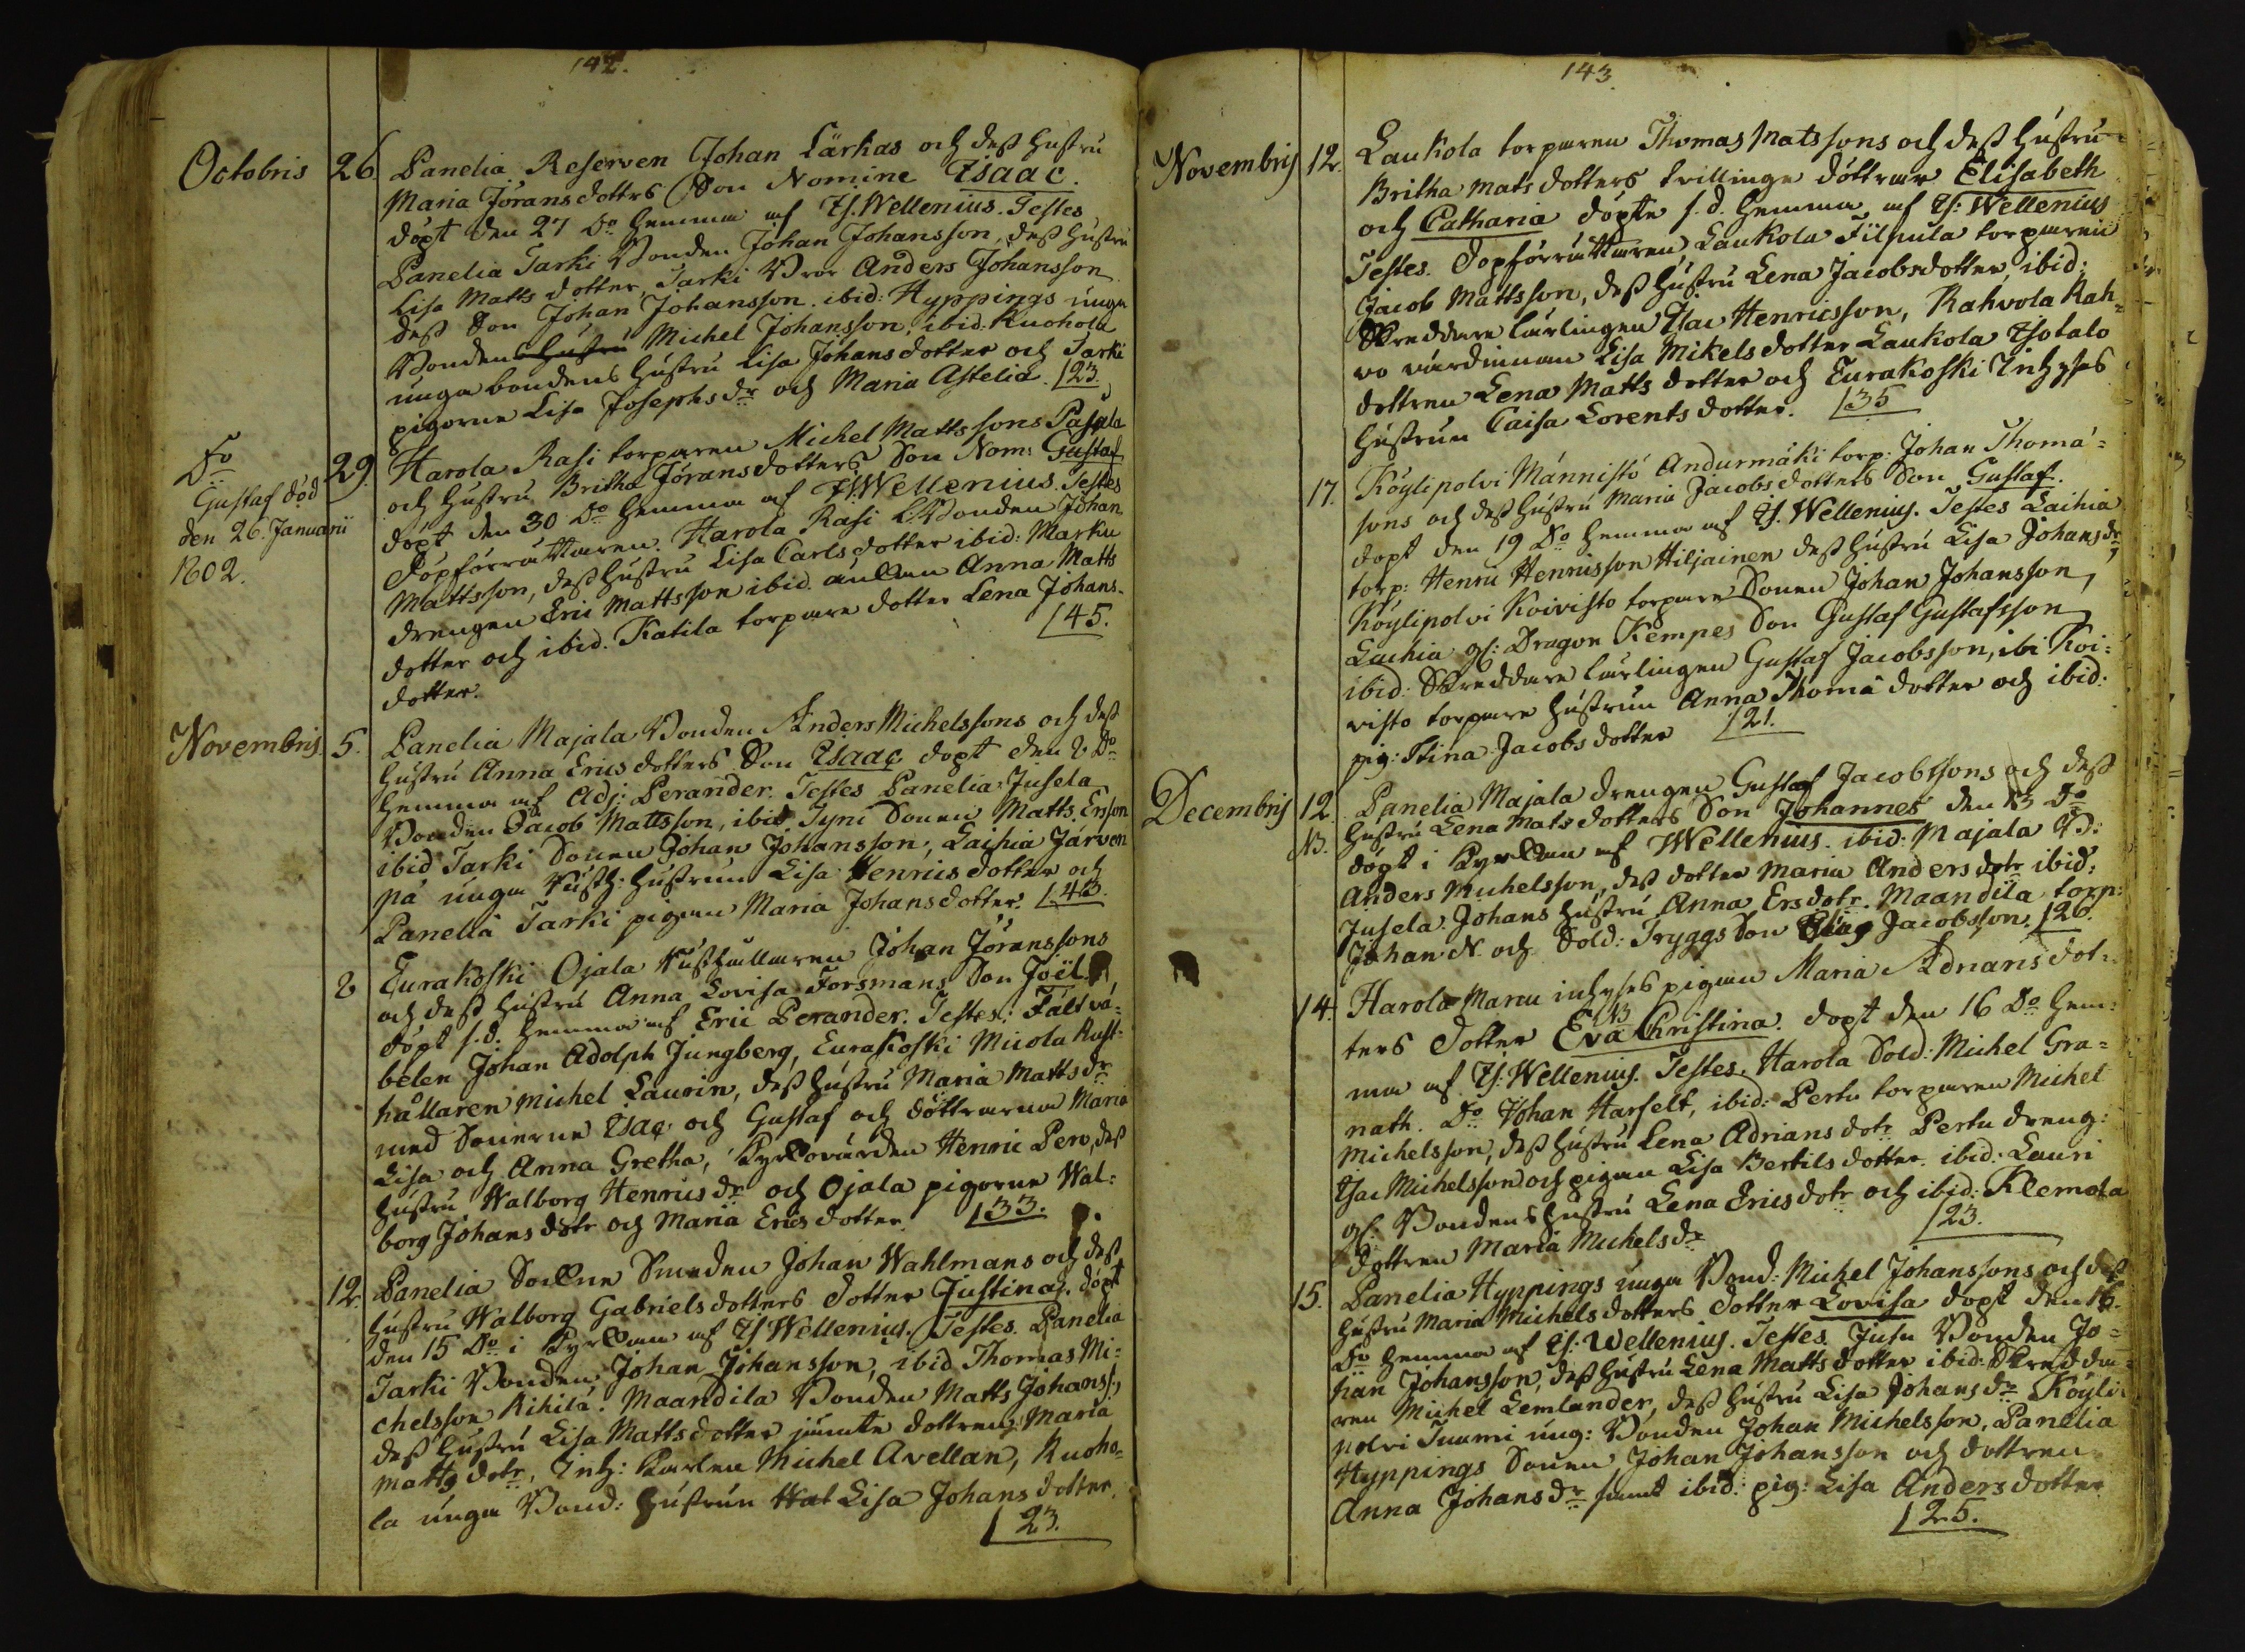 142.
Octobris 26. Panelia Reserven Johan Lärkas och dess hustru
Maria Jöransdotters Son Nomine Isaac.
döpt den 27 Do hemma af Is. Wellenius. Testes
Panelia Tarki Bonden Johan Johansson, dess hustru
Lisa Matts dotter, Tarki Bror Anders Johansson
dess Son Johan Johansson. ibid: Hyppings unga
Bondens hustru Michel Johansson, ibid. Kuohola
unga bondens hustru Lisa Johans dotter och Tarki
pigorne Lisa Josephs dr och Maria Astelia. 23.
Do 29. Harola Rasi torparen Michel Mattssons
Gustaf död
den 26. Januarii
1802.
och hustru Britha Jöransdotters Son Nom: Gustaf
döpt den 30 Do hemma af Is. Wellenius. Testes
Döpförrättaren. Harola Rasi Bonden Johan
Mattsson, dess hustru Lisa Carls dotter ibid: Marku
drengen Eric Mattsson ibid. enkan Anna Matts
dotter och ibid. Katila torpare dotter Lena Johans-
dotter. 45.
Novembris 5. Panelia Majala Bonden Anders Michelssons och dess
hustru Anna Erics dotters Son Isaac döpt den 8 Do
hemma af Adj: Perander. Testes Panelia Jusela
Bonden Jacob Mattsson, ibid Tyni Sonen Matts Ersson
ibid Tarki Sonen Johan Johansson, Laihia Järven
på unga Rusth: hustrun Lisa Henrics dotter och
Panelia Tarki pigan Maria Johans dotter. 43.
8 Eurakoski Ojala Rusthållaren Johan Jöranssons
och dess hustru Anna Lovisa Forsmans Son Joël
döpt s.d. hemma af Eric Perander. Testes: Fältvä-
belen Johan Adolph Jungberg, Eurakoski Micola Rust-
hållaren Michel Laurin, dess hustru Maria Matts dr
med Sönerne Isac och Gustaf och döttrarna Maria
Lisa och Anna Gretha, Kyrkovärden Henric Pero, dess
hustru Walborg Henrics dr och Ojala pigorne Wal:
borg Johans dotr och Maria Erics dotter. 33.
12. Panelia Sockne Smeden Johan Wahlmans och dess
hustru Walborg Gabriels dotters dotter Justina. döpt
den 15 Do i Kyrkan af Is. Wellenius. Testes. Panelia
Tarki Bonden Johan Johansson, ibid Thomas Mi:
chelsson Kihilä. Maandila Bonden Matts Johanss:
dess hustru Lisa Matts dotter jämte dottren Maria
Matts dotr, Inh: Karlen Michel Avellan, Kuoho-
la unga Bond: hustrun Lisa Johans dotter.
23.
143
Novembris 12. Laukola torparen Thomas Matssons och dess hustru
Britha Mats dotters tvillinge döttrar Elisabeth
och Catharia döpte s.d. hemma af Is: Wellenius
Testes. Dopförrättaren, Laukola Filpula torparen
Jacob Mattsson, dess hustru Lena Jacobsdotter, ibid:
Skreddare lärlingen Isac Henricsson, Kahvola Kah-
vo värdinnan Lisa Mikels dotter Laukola Isotalo
dottren Lena Matts dotter och Eurakoski Inhyses
hustrun Caisa Lorents dotter. 35
17. Köylipolvi Männistö Andurmäki torp: Johan Thomæ-
sons och dess hustru Maria Jacobs dotters Son Gustaf.
döpt den 19 Do hemma af Is. Wellenius. Testes Laihia
torp: Henric Henricsson Hiljainen dess hustru Lisa Johans dr,
Köylipolvi Koivisto torpare Sonen Johan Johansson,
Laihia gl: Dragon Kempes Son Gustaf Gustafsson
ibid: Skreddare lärlingen Gustaf Jacobsson, ibi Koi:
visto torpare hustrun Anna Thomæ dotter och ibid:
pig: Stina Jacobs dotter 21.
Decembris 12. Panelia Majala drengen Gustaf Jacobssons och dess
NB. hustru Lena Mats dotters Son Johannes den 13 Do
döpt i Kyrkan af Wellenius. ibid: Majala B:
Anders Michelsson, dess dotter Maria Anders dotr ibid:
Jusela Johans hustru Anna Ers dotr. Maandila torp:
Johan N. och Sold: Tryggs Son Jacobsson. 26.
14. Harola Marcu inhyses pigan Maria Adrians dot-
ters dotter Eva Christina. döpt den 16 Do hem:
NB
ma af Is: Wellenius. Testes. Harola Sold: Michel Gra-
nath. Do Johan Harfelt, ibid: Pertu torparen Michel
Michelsson, dess hustru Lena Adrians dotr Pertu dreng:
Isac Michelsson och pigan Lisa Bertils dotter. ibid: Lauri
gl: Bondens hustru Lena Erics dotr och ibid: Klemola
dottren Maria Michels dr 23.
15. Panelia Hyppings unga Bond: Michel Johanssons och dess
hustru Maria Michels dotters dotter Lovisa döpt den 16.
Do hemma af Is: Wellenius. Testes. Jusu Bonden Jo-
han Johansson, dess hustru Lena Matts dotter ibid: Skredda-
ren Michel Lemlander, dess hustru Lisa Johans dr Köyli-
polvi Tuomi ung: Bonden Johan Michelsson, Panelia
Hyppings Sonen Johan Johansson och dottren
Anna Johans dr samt ibid: pig: Lisa Anders dotter
25.